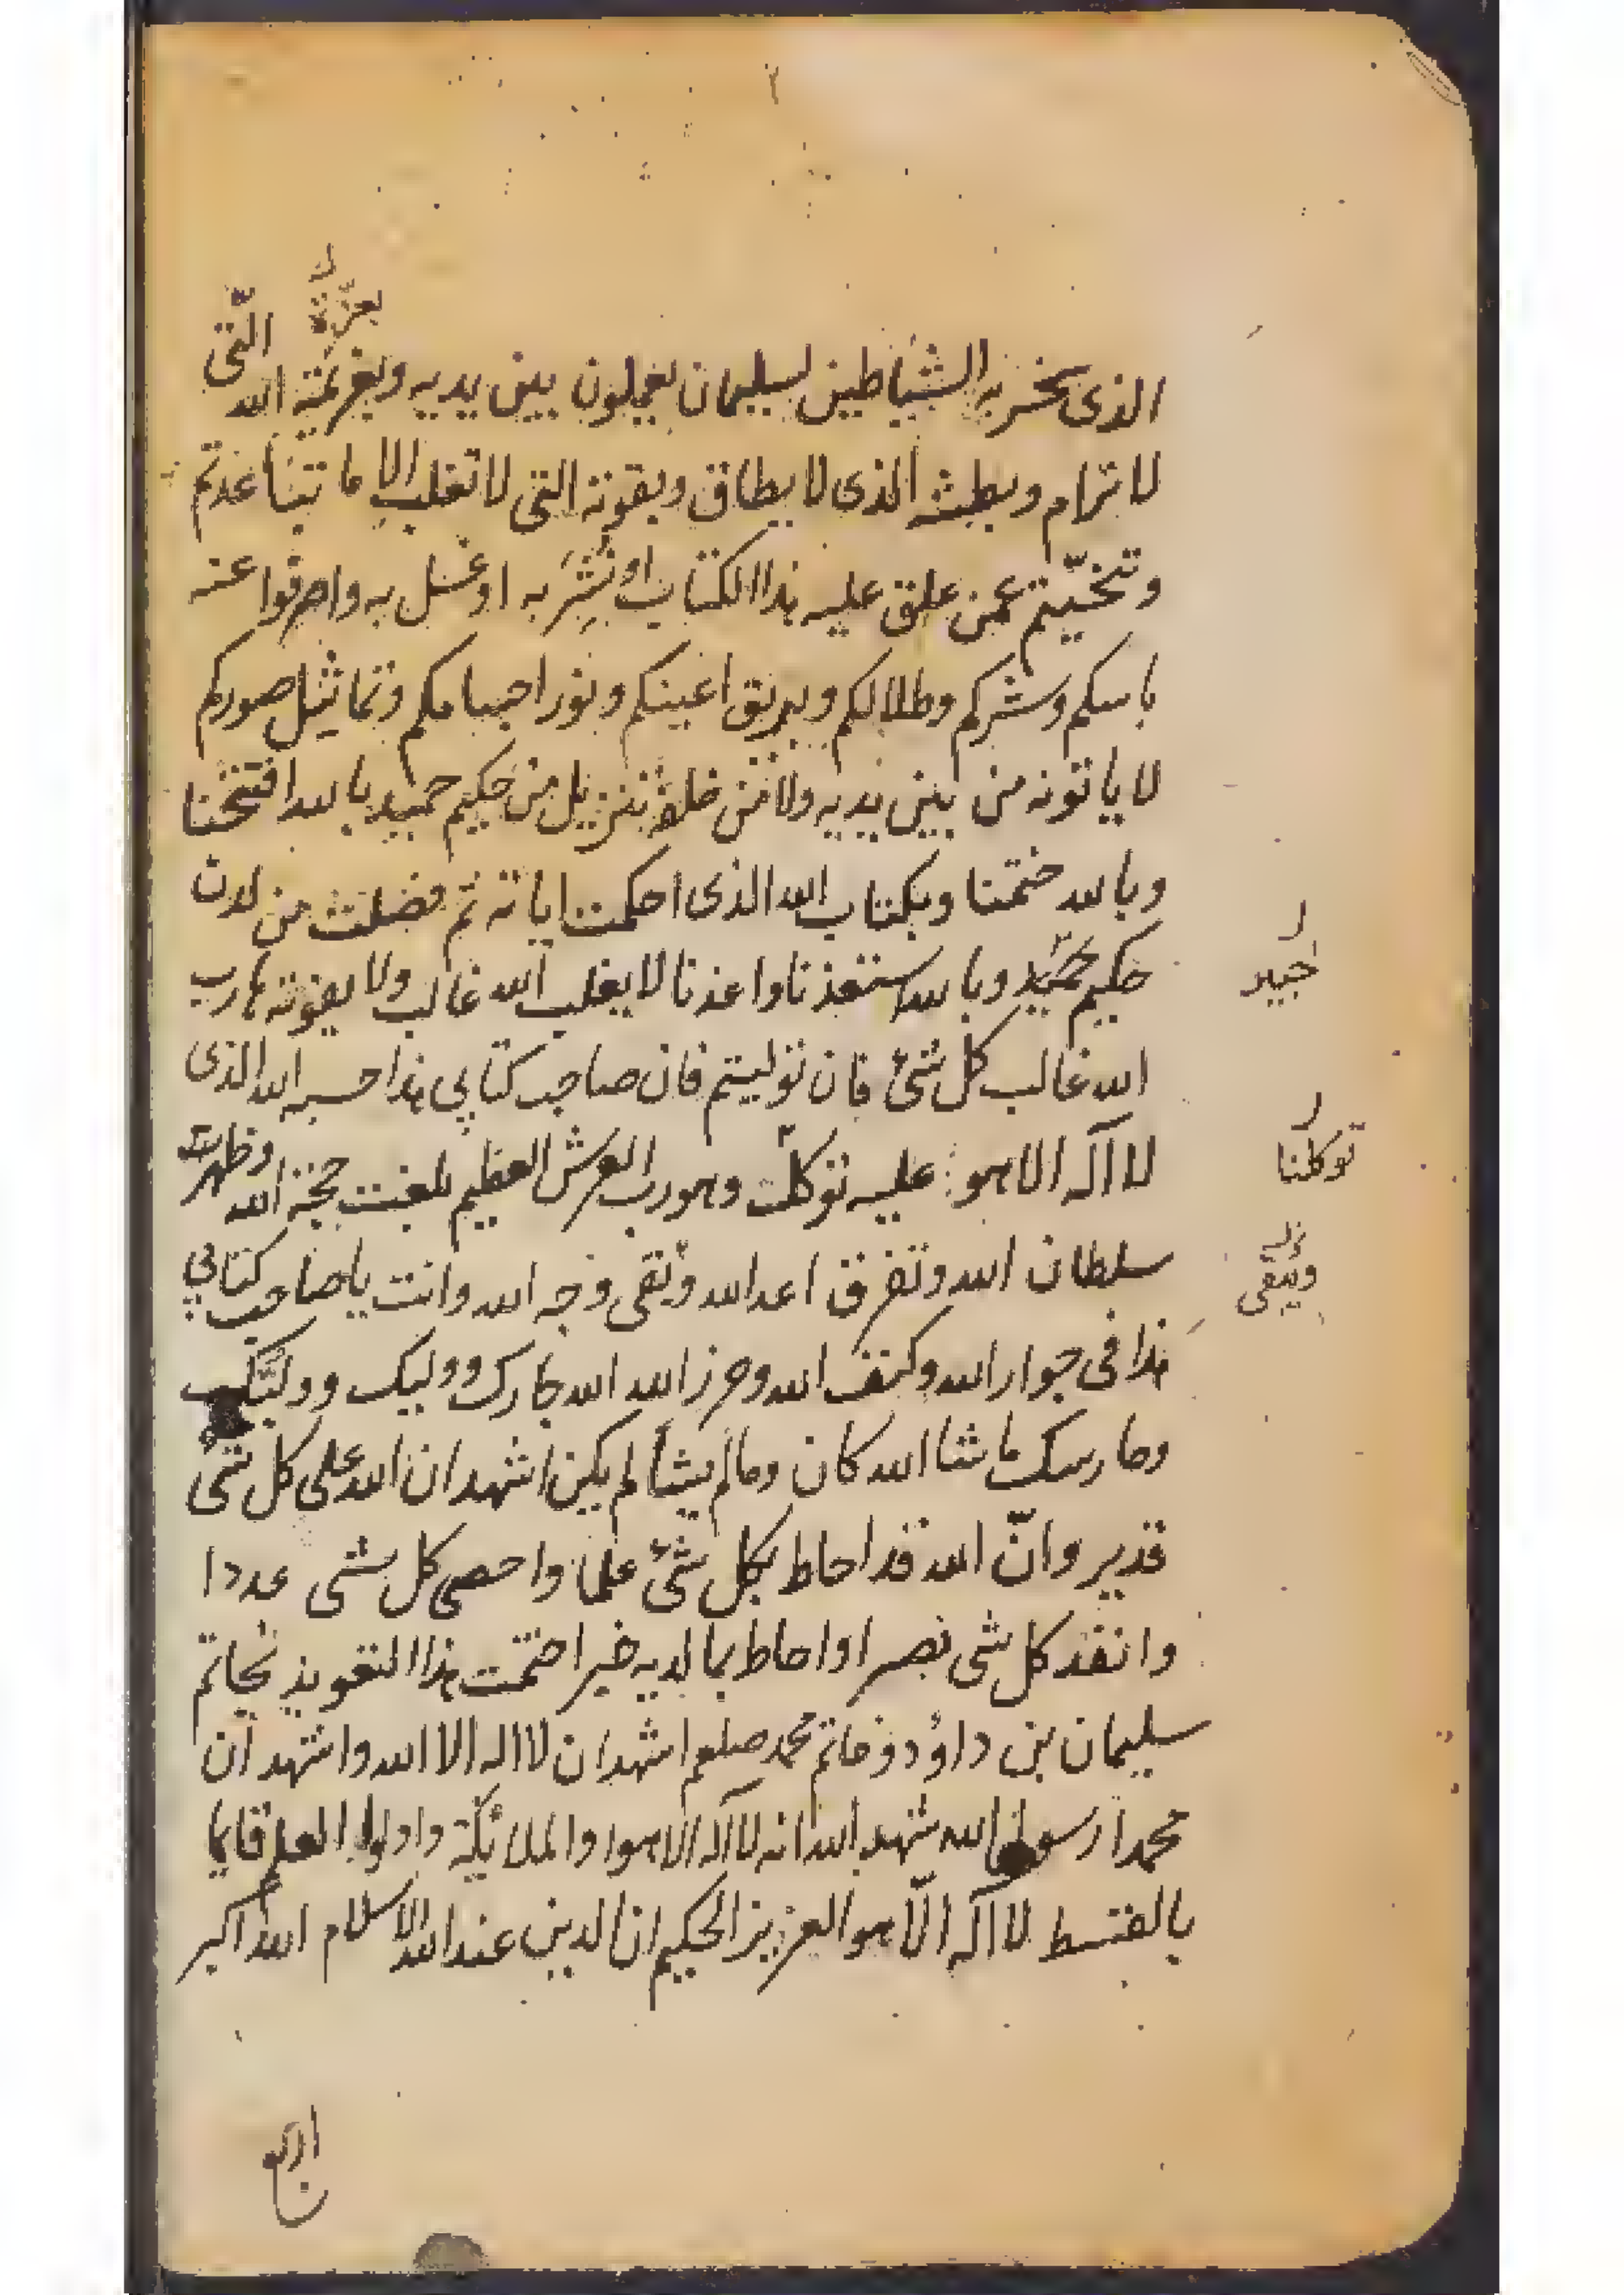 ٢
بعزّة
الذى سخر به الشياطين لسليمان يعملون بين يديه وبعزيمة الله التّى
لا ترام وبطشه الذى لا يطاق وبقوته التى لا تغلب الا ما تباعدتم
وتنحّيتم عمن علق عليه هذا الكتاب او نُشِّرَ به او غسل به واصرفوا عنه
باسكم وشركم وظلالكم وبريق اعينكم ونور اجسامكم وتماثيل صوركم
لا ياتونه من بين يديه ولا من خلفه تنزيل من حكيم حميد بالله افتتحنا
وبالله ختمنا وبكتاب الله الذى احكمت اياته ثم فصلت من لدن
حكيم حميد وبالله استعذنا واعذنا لا يغلب الله غالب ولا يفوته هارب
خبير
الله غالب كل شئ فان توليتم فان صاحب كتابى هذا حسبه الله الذى
لا آله الا هو عليه توكلت وهو رب العرش العظيم بلغت حجة الله وظهرت
توكلنا
سلطان الله وتفرق اعدا الله وتقى وجه الله وانت يا صاحب كتابي
ويبقى
هذا فى جوار الله وكنف الله وحرز الله الله جارك ووليك
وحارسك ما شا الله كان وما لم يشأ لم يكن اشهد ان الله على كل شئ
قدير وانّ الله قد احاط بكل شئ علما واحصى كل شى عددا
وانفذ كل شى بصرا واحاط بما لديه خبرا ختمت هذا التعويذ بخاتم
سليمان بن داؤد وخاتم محمد صلعم اشهد ان لا اله الا الله واشهد ان
محمدا رسول الله شهد الله انه لا آله الا هو والملائكة واولوا العلم قايما
بالقسط لا آله الّا هو العزيز الحكيم ان الدين عند الله الاسلام الله اكبر